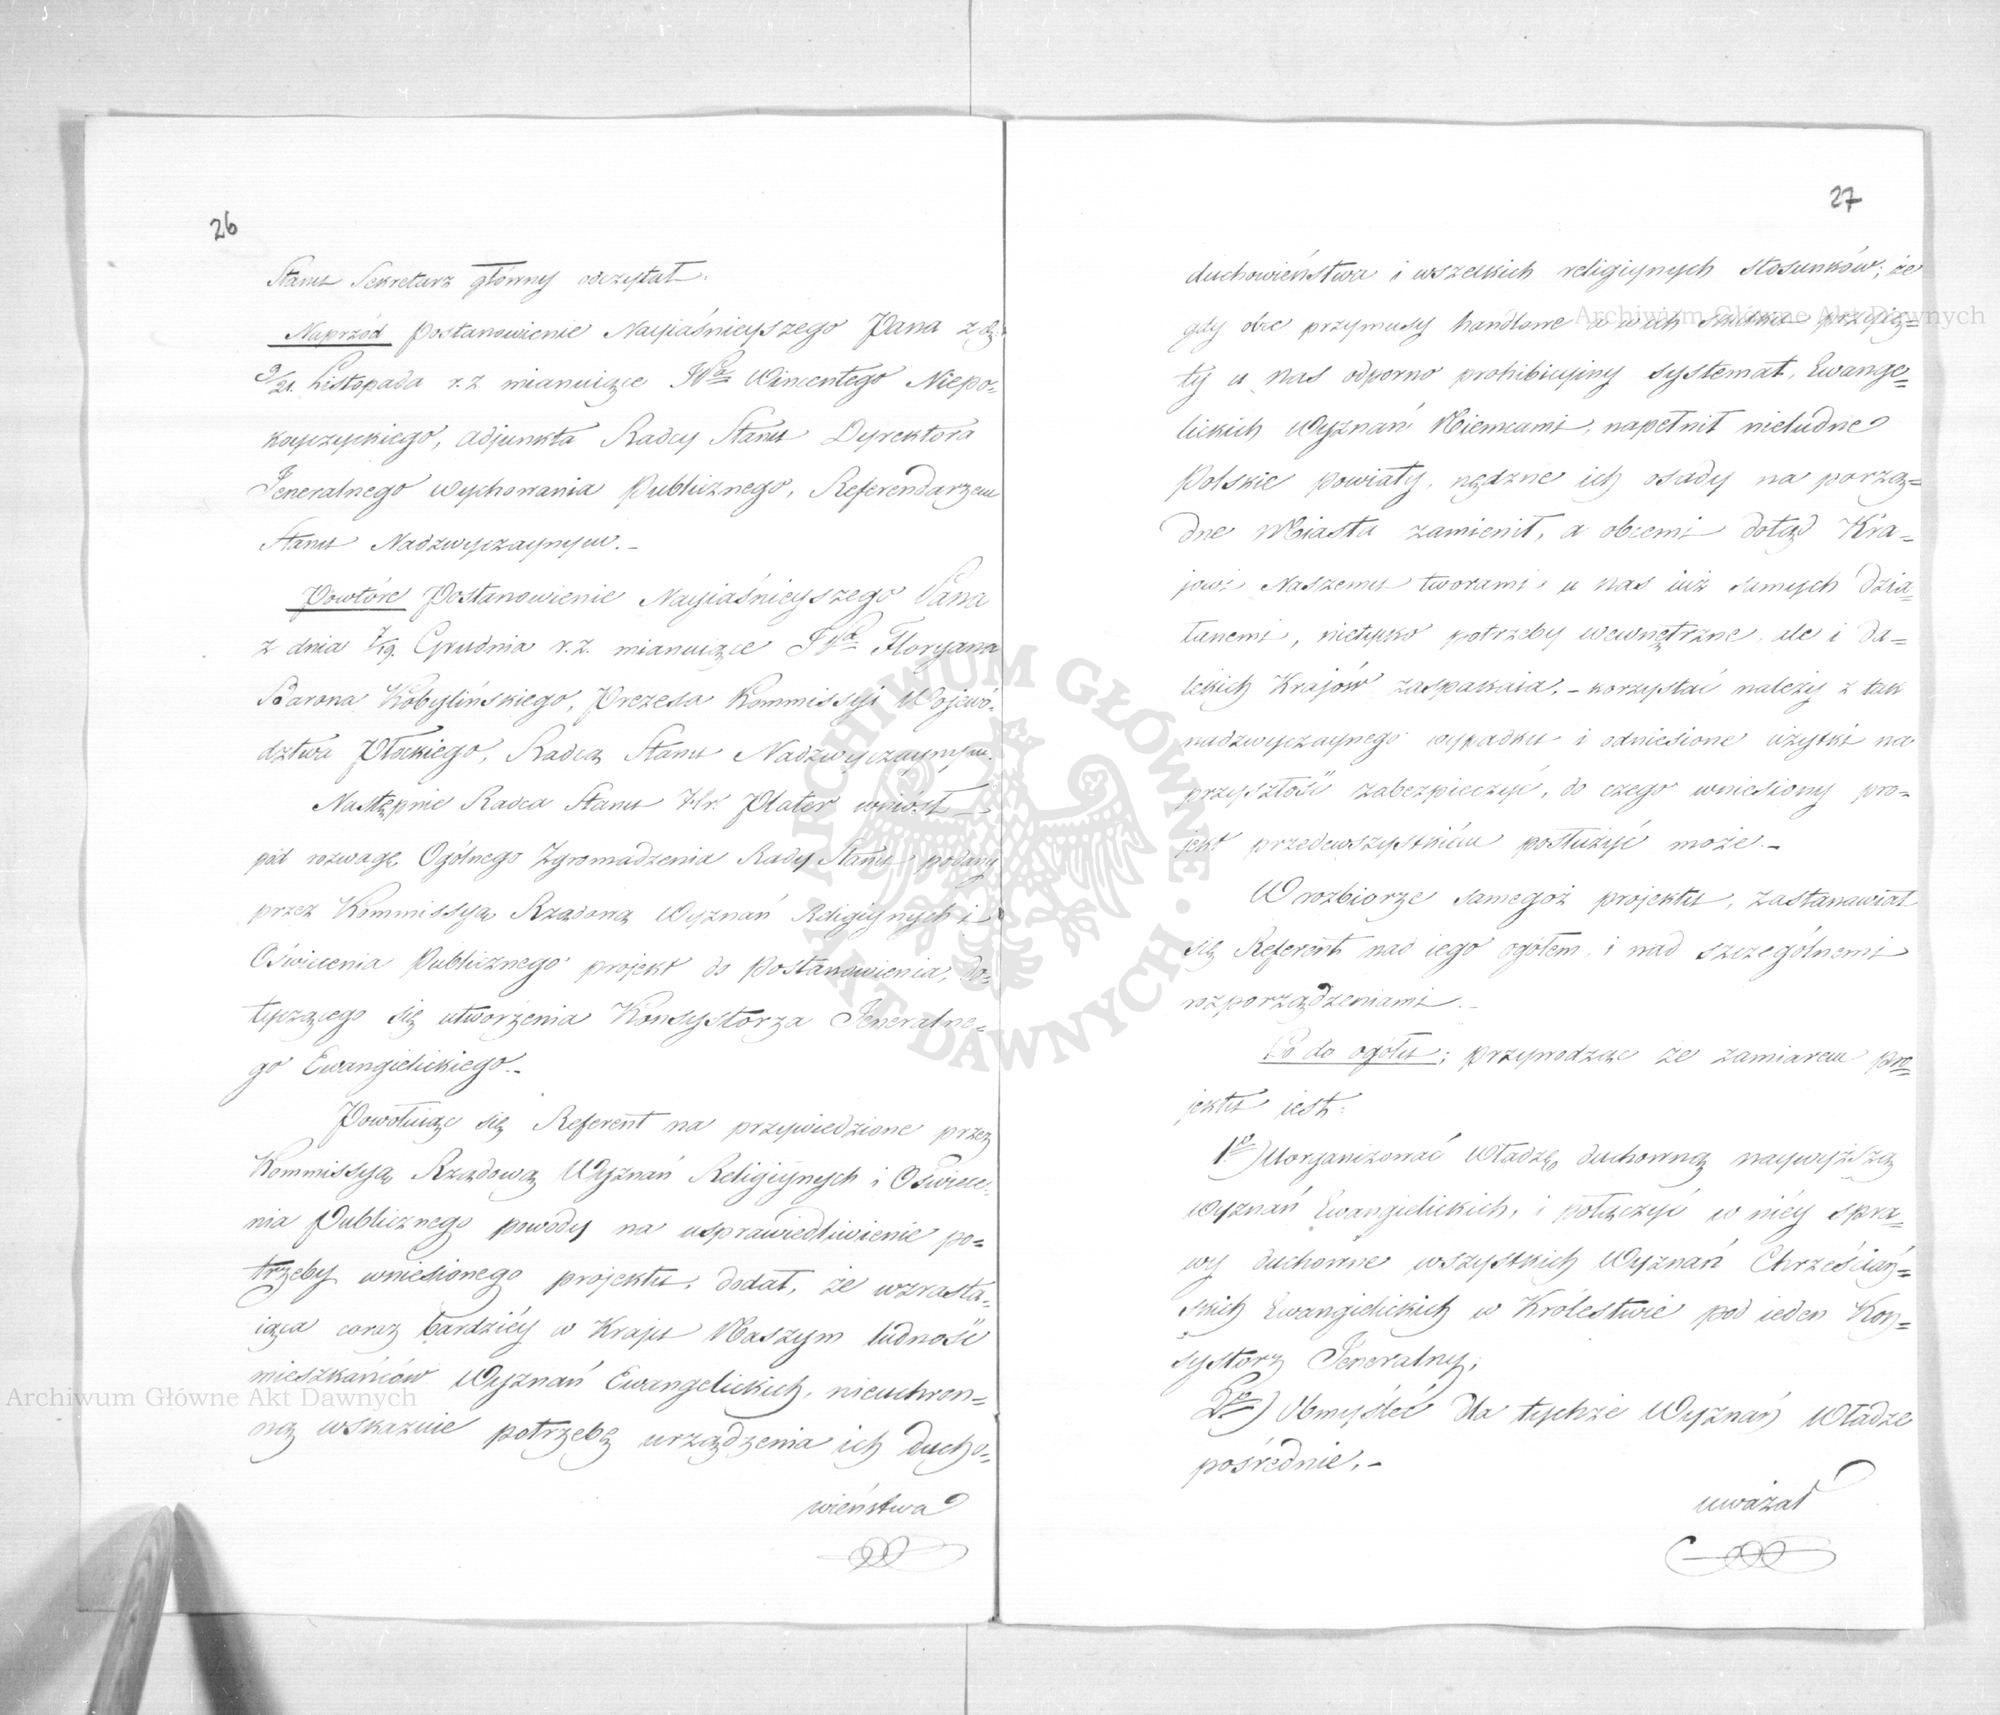 26
Stanu Sekretarz główny odczytał.
Naprzód Postanowienie Nayiaśnieyszego Pana z d:
9/21. Listopada r. z. mianuiące JPa Wincentego Niepo-
kayczyckiego, Adjunkta Radcy Stanu Dyrektora
Jeneralnego Wychowania Publicznego, Referendarzem
Stanu Nadzwyczaynym.-
Powtóre Postanowienie Nayiaśnieyszego Pana
z dnia 7/19. Grudnia r. z. mianuiące JPa Floryana
Barona Kobylińskiego, Prezesa Kommissyi Wojewó-
dztwa Płockiego, Radcą Stanu Nadzwyczaynym.
Następnie Radca Stanu Hr. Plater wniósł
pod rozwagę Ogólnego Zgromadzenia Rady Stanu podany
przez Kommissyą Rządową Wyznań Religiynych i
Oświecenia Publicznego projekt do Postanowienia, do-
tyczącego się utworzenia Konsystorza Jeneralne-
go Ewangielickiego.-
Powołuiąc się Referent na przywiedzione przez
Kommissyą Rządową Wyznań Religiynych i Oświece-
nia Publicznego powody na usprawiedliwienie po-
trzeby wniesionego projektu, dodał, że wzrasta-
iąca coraz bardziéy w Kraju Naszym ludność
mieszkańców Wyznań Ewangelickich, nieuchron-
ną wskazuie potrzebę urządzenia ich ducho-
wieństwa
27
duchowieństwa i wszelkich religiynych stosunków; że
gdy obce przymusy handlowe i w ich skutku przyię-
ty u nas odporno prohibicyiny systemat, Ewange-
lickich Wyznań Niemcami, napełnił nieludne
Polskie powiaty, nędzne ich osady na porzą-
dne Miasta zamienił, a obcemi dotąd Kra-
jowi Naszemu tworami u nas iuż samych dzia-
łanemi, nietylko potrzeby wewnętrzne, ale i da-
lekich Krajów zaspakaia, - korzystać należy z tak
nadzwyczaynego wypadku i odniesione użytki na
przyszłość zabezpieczyć, do czego wniesiony pro-
jekt przedewszystkiém posłużyć może.-
W rozbiorze samegoż projektu, zastanawiał
się Referent nad iego ogółem, i nad szczególnemi
rozporządzeniami.-
Co do ogółu; przywodząc że zamiarem pro-
jektu iest:
1o) Uorganizować Władzę duchowną naywyższą
Wyznań Ewangielickich, i połączyć w niéy spra-
wy duchowne wszystkich Wyznań Chrześciań-
skich Ewangielickich w Królestwie pod ieden Kon-
systorz Jeneralny;
2o) Obmyśleć dla tychże Wyznań Władze
pośrednie,-
uważał
Archiwum Główne Akt Dawnych
Archiwum Główne Akt Dawnych
ARCHIWUM GŁÓWNE AKT DAWNYCH